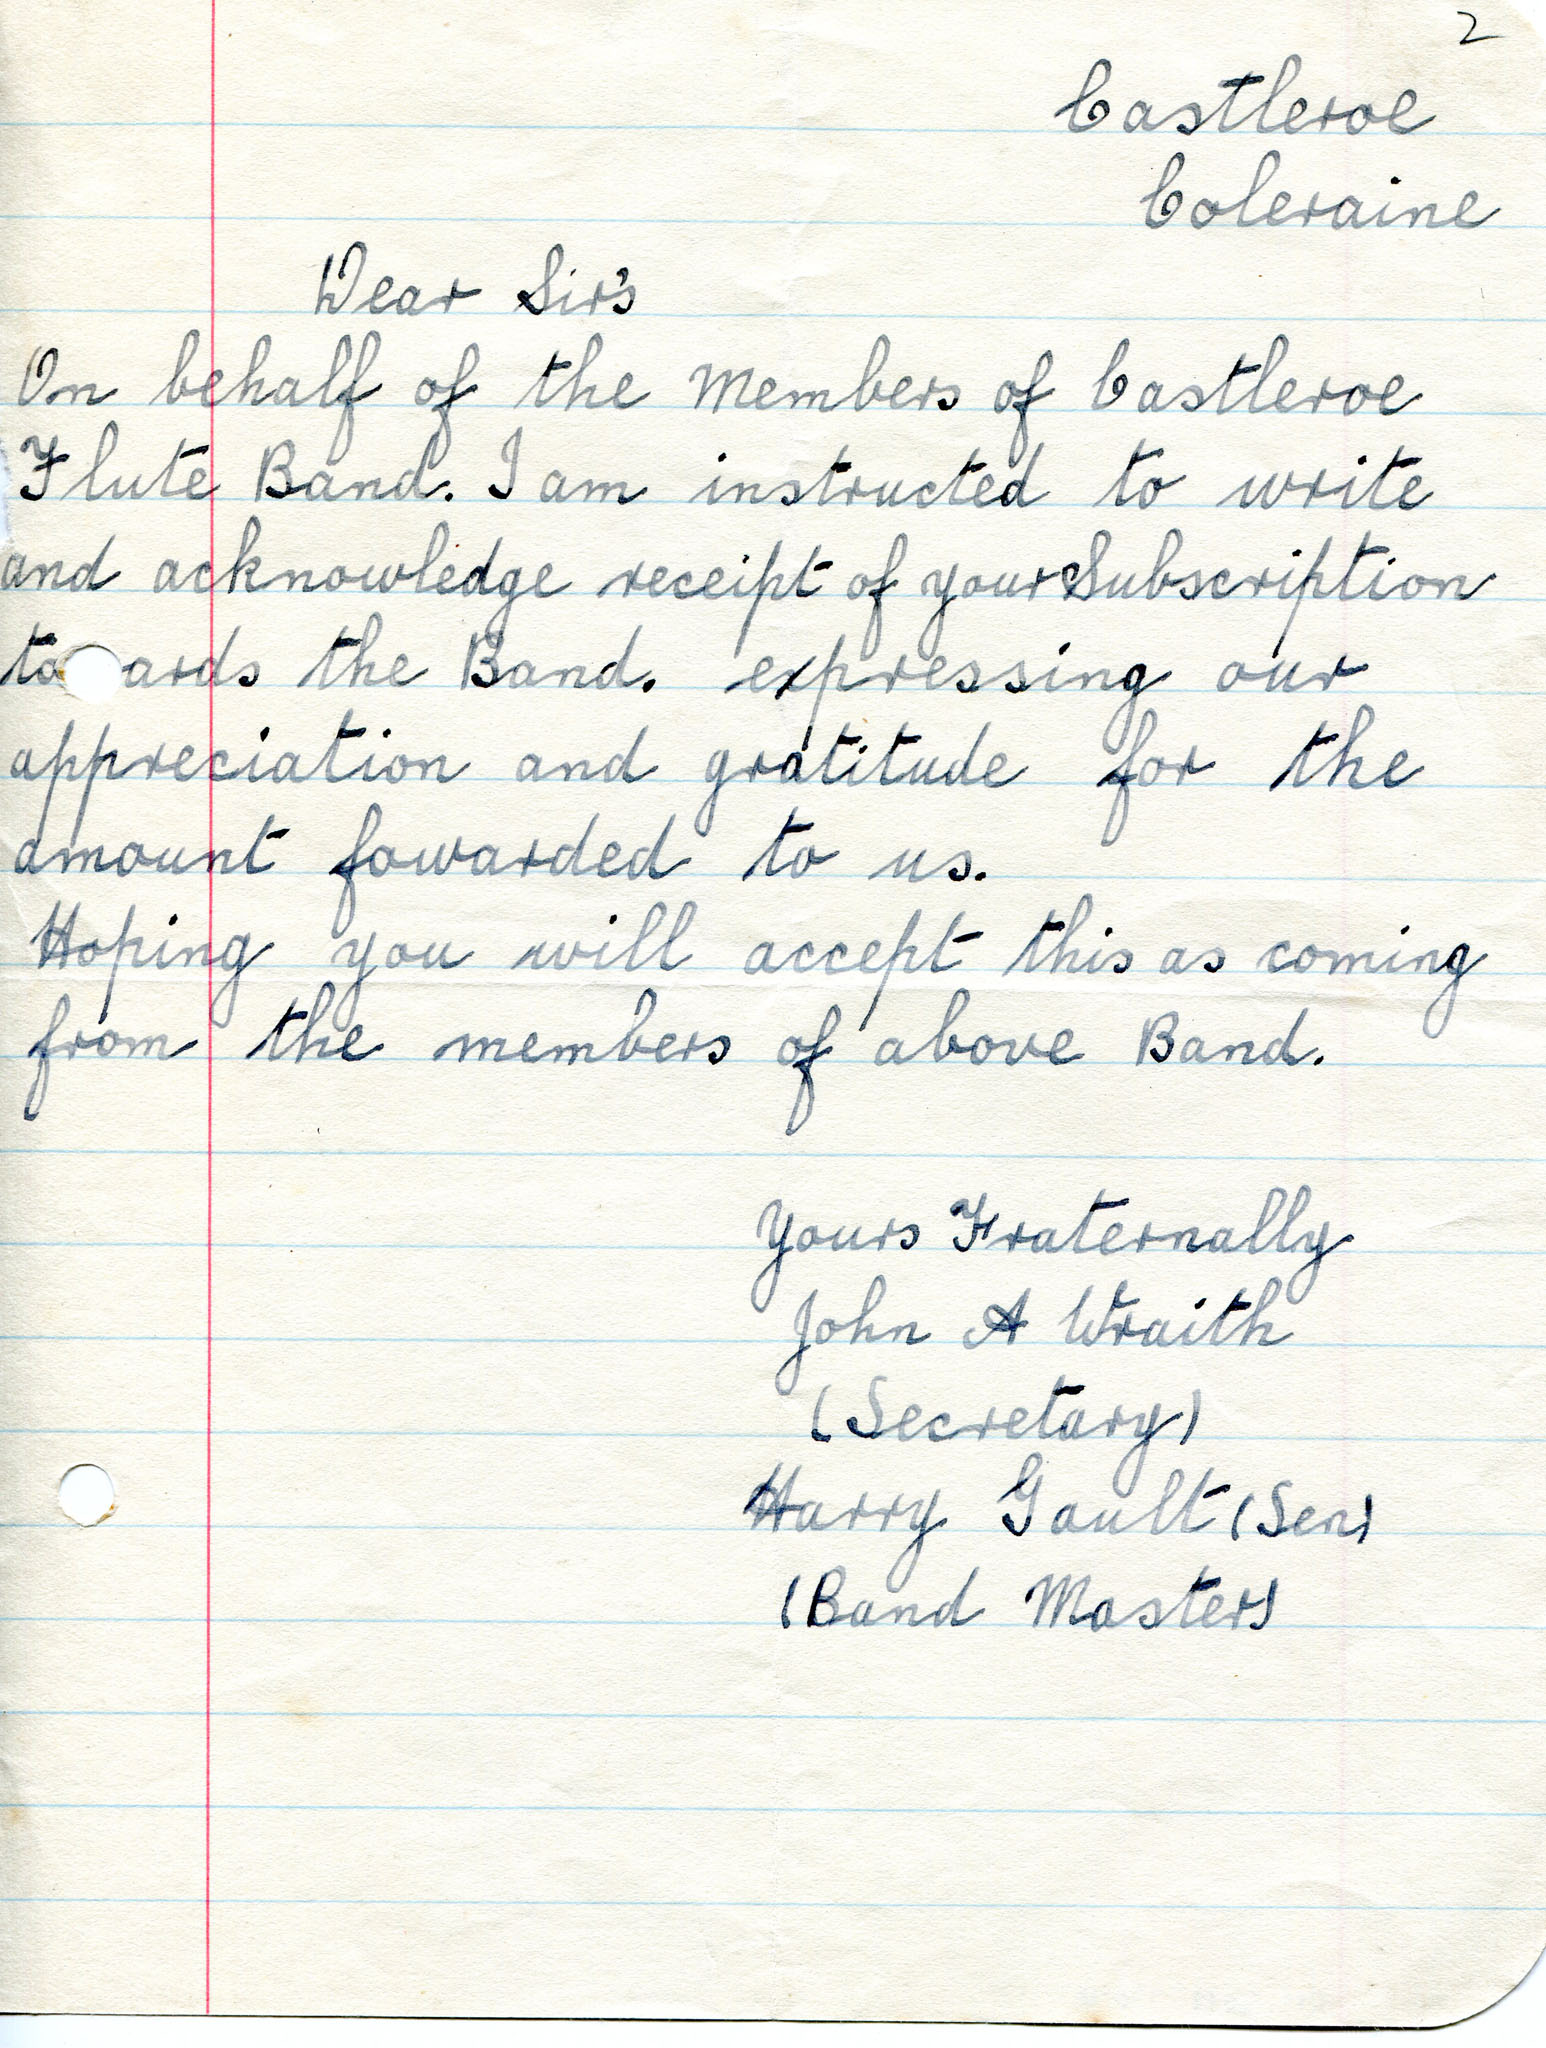 2
Castleroe
Coleraine
Dear Sir's
On behalf of the Members of Castleroe
Flute Band. I am instructed to write
and acknowledge receipt of your Subscription
to ards the Band. expressing our
appreciation and gratitude for the
amount fowarded to us.
Hoping you will accept this as coming
from the members of above Band.
Yours Fraternally
John A Wraith
(Secretary)
Harry Gault (Sen)
(Band Master)